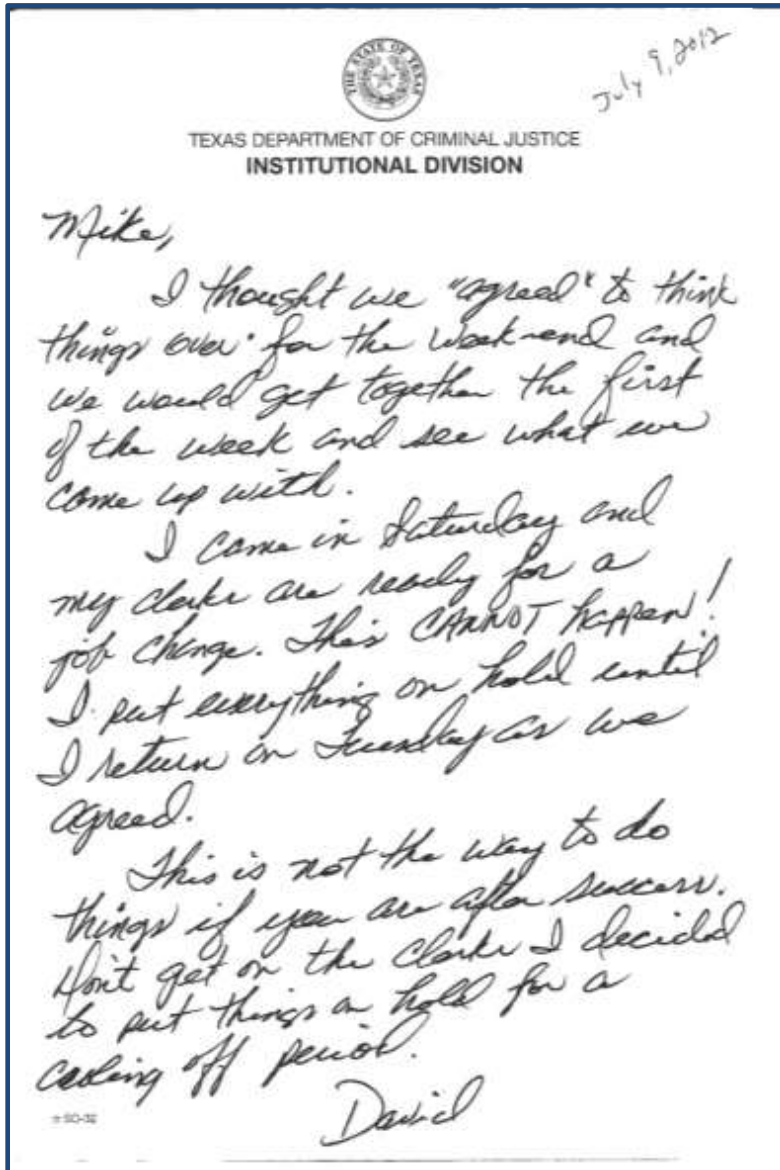 July 9, 2012
THE STATE OF TEXAS
TEXAS DEPARTMENT OF CRIMINAL JUSTICE
INSTITUTIONAL DIVISION
Mike,
I thought we "agreed" to think
things over for the week-end and
we would get together the first
of the week and see what we
come up with.
I came in Saturday and
my clerks are ready for a
job change. This CANNOT happen!
I put everything on hold until
I return on Tuesday as we
agreed.
This is not the way to do
things if you are after success.
Don't get on the clerks I decided
to put things on hold for a
cooling off period.
David
SO-32